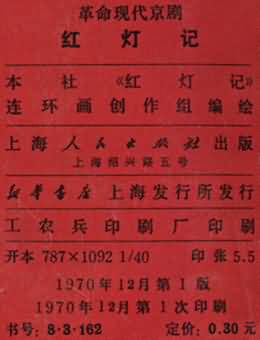 革命现代京剧
红灯记
本社《红灯记》
连环画创作组编绘
上海人民出版社出版
上海绍兴路五号
新华书店上海发行所发行
工农兵印刷厂印刷
开本 787×1092 1/40 印张 5.5
1970年12月第1版
1970年12月第1次印刷
书号: 8·3·162 定价: 0.30元